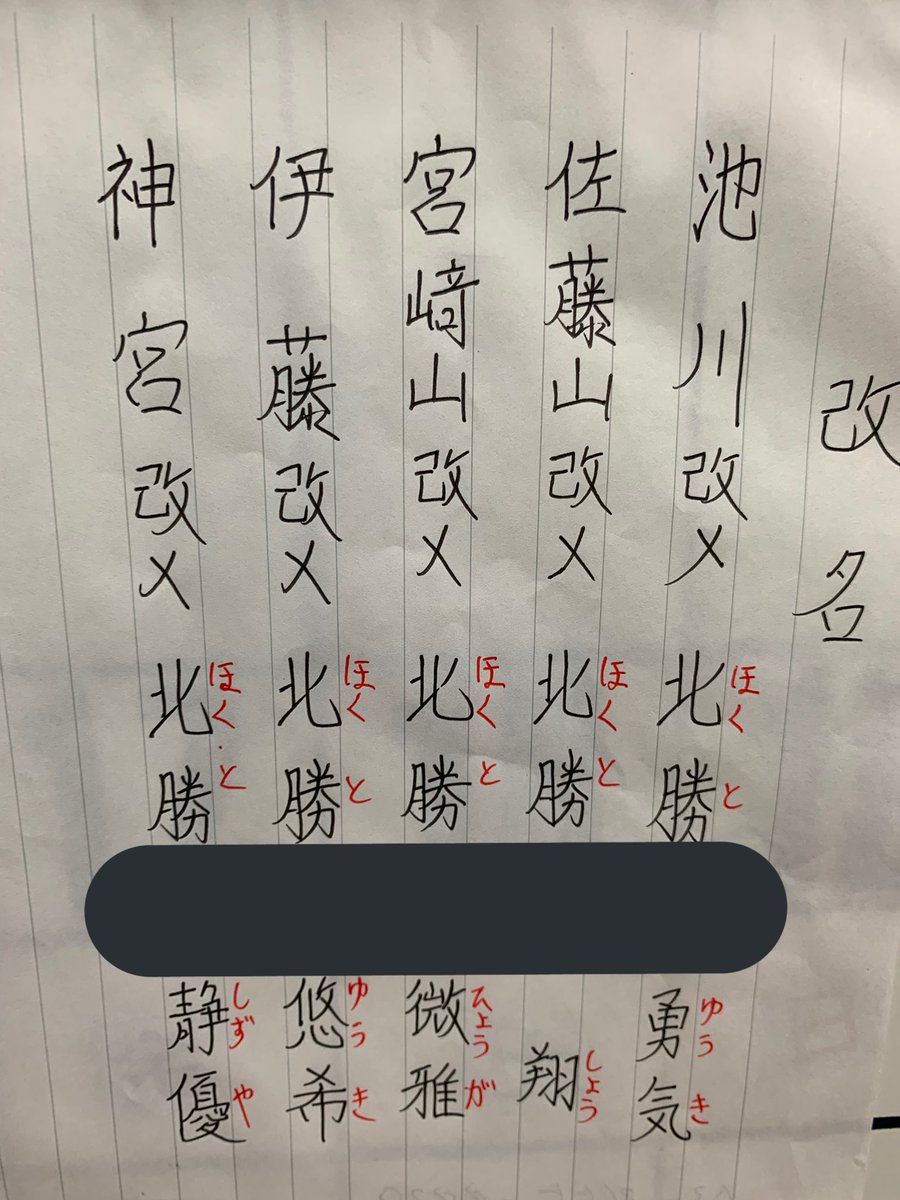 改名
池川改メ 北勝 勇気 ほくと ゆうき
佐藤山改メ 北勝 翔 ほくと しょう
宮﨑山改メ 北勝 微雅 ほくと ひょうが
伊藤改メ 北勝 悠希 ほくと ゆうき
神宮改メ 北勝 静優 ほくと しずや